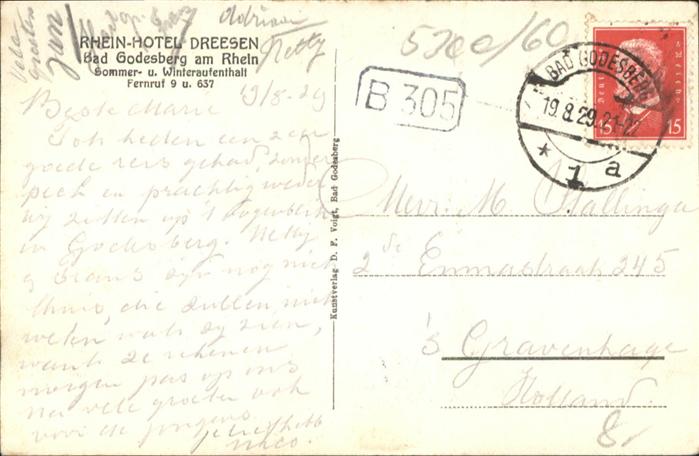 Vele
groeten
Jan
Adriaan
Netty
RHEIN-HOTEL DREESEN
Bad Godesberg am Rhein
Sommer- u. Winteraufenthalt
Fernruf 9 u. 637
Beste Marie 19/8-29
Toch hebben een zeer
goede reis gehad, zonder
pech en prachtig weder
wij zitten op 't oogenblik
in Godesberg. Netty
zijn nog niet
thuis, die zullen niet
weten wat zij zien,
want ze rekenen
morgen pas op ons
na vele groeten ook
voor de jongens.
Kunstverlag D. F. Voigt, Bad Godesberg
5200/60
B 305
BAD GODESBERG
19.8.29.21-22
* 1 a
Deutsches Reich
15 15
Mevr. M Stallinga
2de Emmastraat 245
's Gravenhage
Holland.